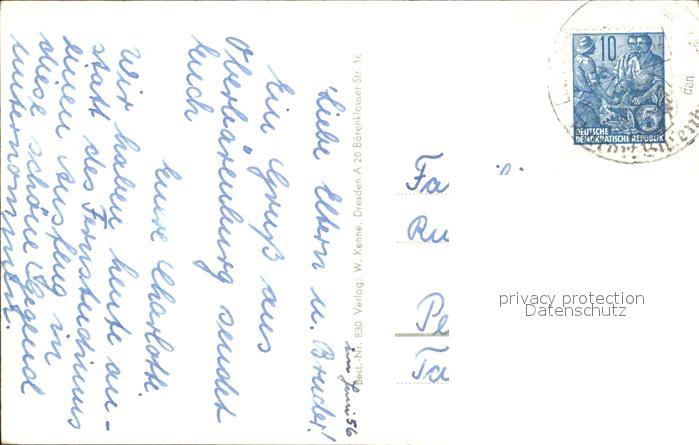 Liebe Eltern u. Bruder!
Ein Gruß aus
Oberbärenburg sendet
Euch
Eure Charlotte.
Wir haben heute an-
statt des Fernstudiums
einen Ausflug in
diese schöne Gegend
unternommen.
im Juni 56
Best.-Nr. 830 Verlag: W. Kenne, Dresden A 20 Bärenklauser Str. 1c
10
DEUTSCHE
DEMOKRATISCHE REPUBLIK
Fa
Ru
Pe
Ta
privacy protection
Datenschutz